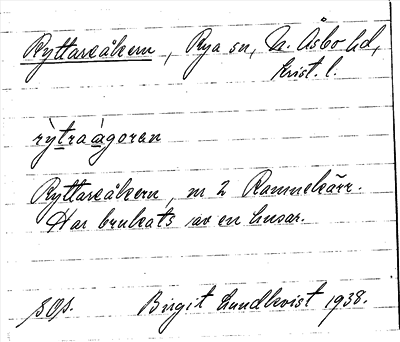 Ryttareåkern, Rya sn, N. Åsbo hd,
Krist. l.
rỳtraàgoran
Ryttareåkern, nr 2 Rammekärr.
Har brukats av en husar.
SOp. Birgit Lundkvist 1938.